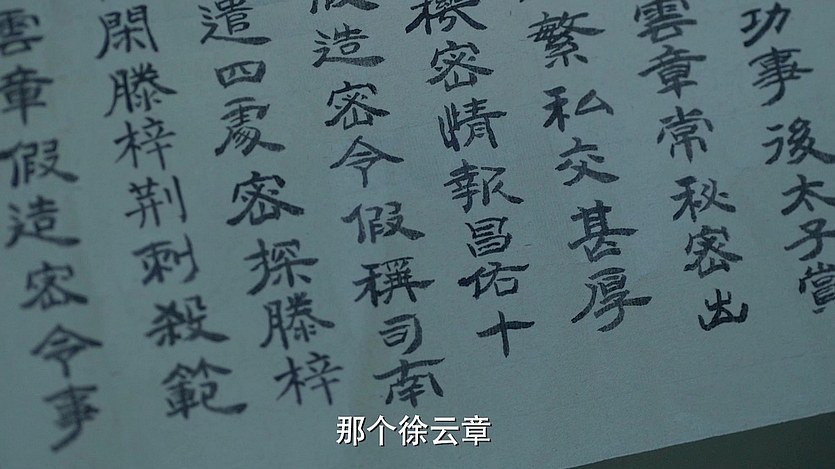 功事後太子嘗
雲章常秘密出
繁私交甚厚
機密情報昌佑十
造密令假稱司南
遣四處密探滕梓
閑滕梓荆刺殺範
雲章假造密令事
那个徐云章